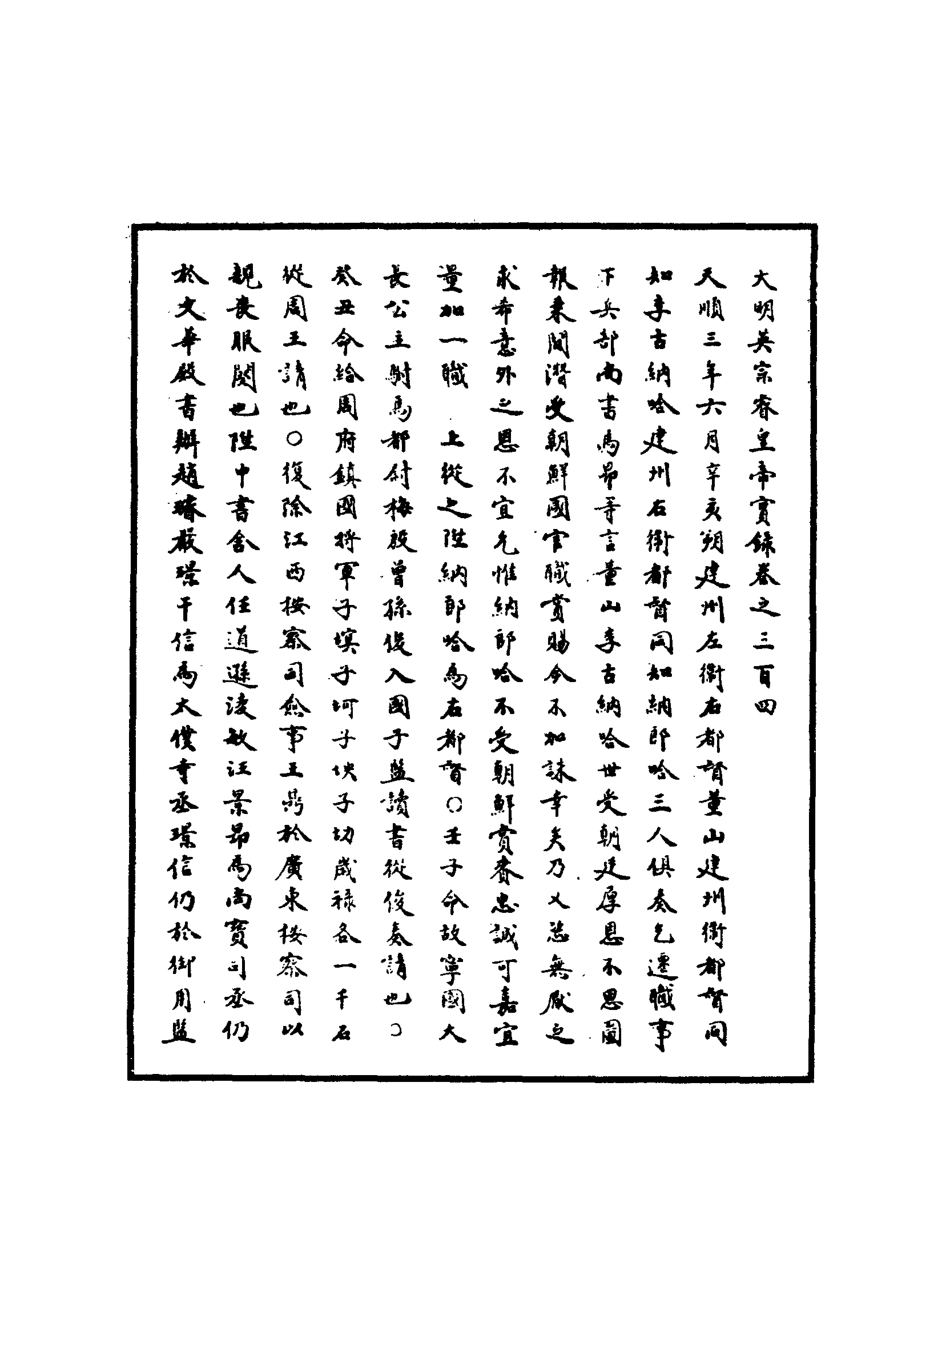 大明英宗睿皇帝實錄卷之三百四
天順三年六月辛亥朔建州左衛右都督董山建州衛都督同
知李古納哈建州右衛都督同知納郎哈三人俱奏乞遷職事
下兵部尚書馬昂等言董山李古納哈世受朝廷厚恩不思圖
報秉間潛受朝鮮國官職賞賜今不加誅幸矣乃又恣無厭之
求希意外之恩不宜允惟納郎哈不受朝鮮賞賚忠誠可嘉宜
量加一職 上從之陞納郎哈為右都督○壬子命故寧國大
長公主駙馬都尉梅殷曾孫俊入國子監讀書從俊奏請也○
癸丑命給周府鎮國將軍子塓子坷子坱子㘦歲祿各一千石
從周王請也○復除江西按察司僉事王鼎於廣東按察司以
親喪服闋也陞中書舍人任道遜凌敏汪景昂為尚寶司丞仍
於文華殿書辦趙𤩽嚴璟干信為太僕寺丞璟信仍於御用監